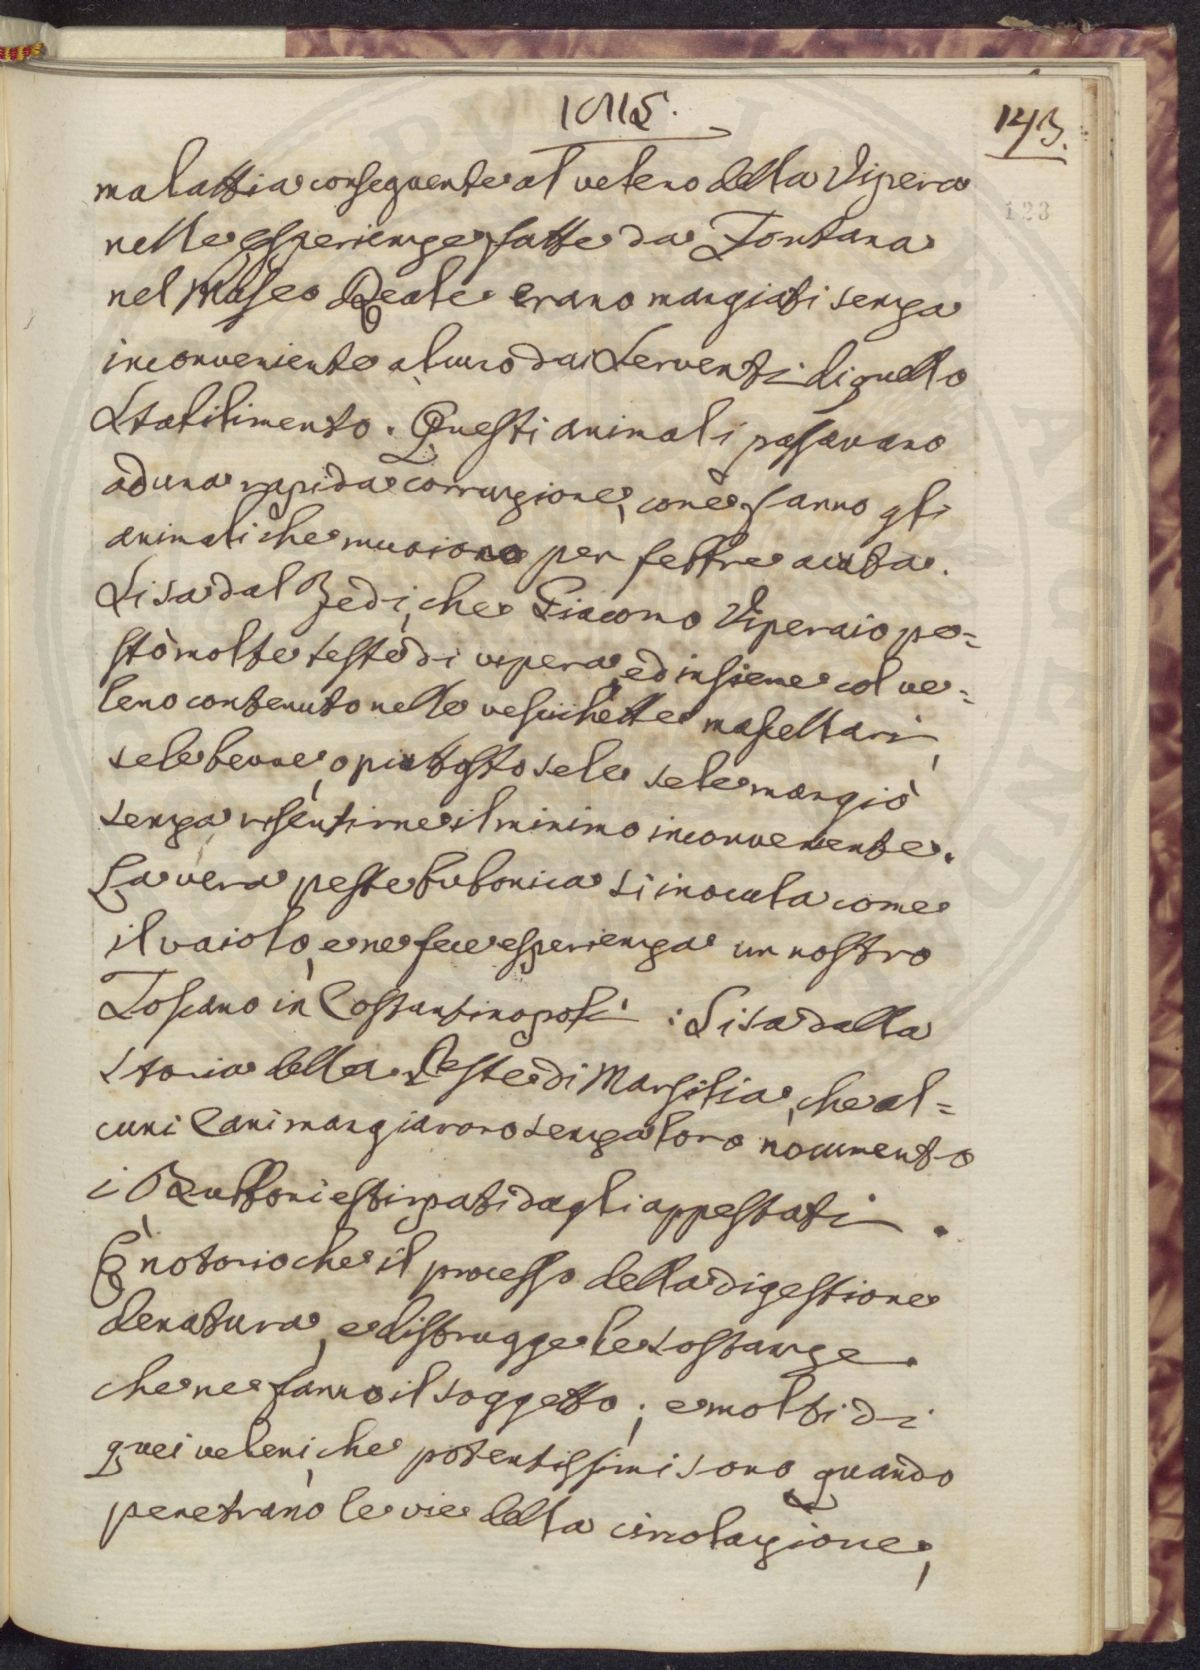 143.
123
malattia conseguente al veleno della Vipera
nelle esperienze fatte da Fontana
nel Museo Reale erano mangiati senza
inconveniente alcuno dai Serventi di quello
Stabilimento. Questi animali passavano
ad una rapida corruzione, come fanno gli
animali che muoiono per febbre acuta.
Si sa dal Redi, che Giacomo Viperaio pe=
stò molte teste di vipera, ed insieme col ve=
leno contenuto nelle vescichette mascellari,
se le bevve, o piuttosto se le se le mangiò
senza risentirne il minimo inconveniente.
La vera peste bubonica si inocula come
il vaiolo, e ne fece esperienza un nostro
Toscano in Costantinopoli: Si sa dalla
storia della Peste di Marsilia, che al=
cuni Cani mangiarono senza loro nocumento
i Buboni estirpati dagli appestati.
È notorio che il processo della digestione
denatura, e distrugge le sostanze
che ne fanno il soggetto; e molti di
quei veleni, che potentissimi sono quando
penetrano le vie della circolazione,